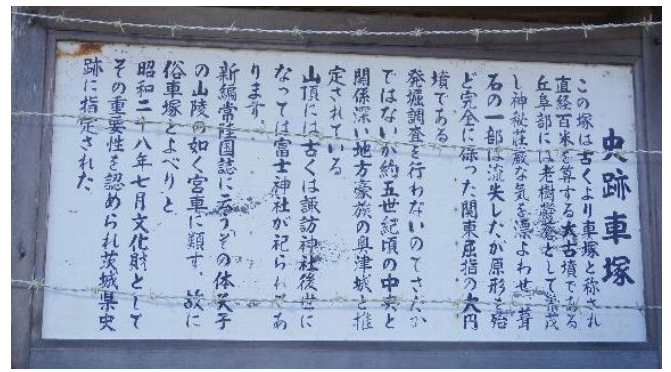 史跡車塚
この塚は古くより車塚と称され
直経百米を算する大古墳である
丘阜部には老樹欝蒼として繁茂
し神秘荘厳な気を漂よわせ、葺
石の一部は流失したが原形を殆
ど完全に保った関東屈指の大円
墳である
発掘調査を行わないのでさだか
ではないが約五世紀頃の中央と
関係深い地方豪族の奥津城と推
定されている
山頂には古くは諏訪神社後世に
なっては富士神社が祀られてあ
ります。
新編常陸国誌に云うその体天子
の山陵の如く宮車に類す、故に
俗車塚とよべりと
昭和二十八年七月文化財として
その重要性を認められ茨城県史
跡に指定された